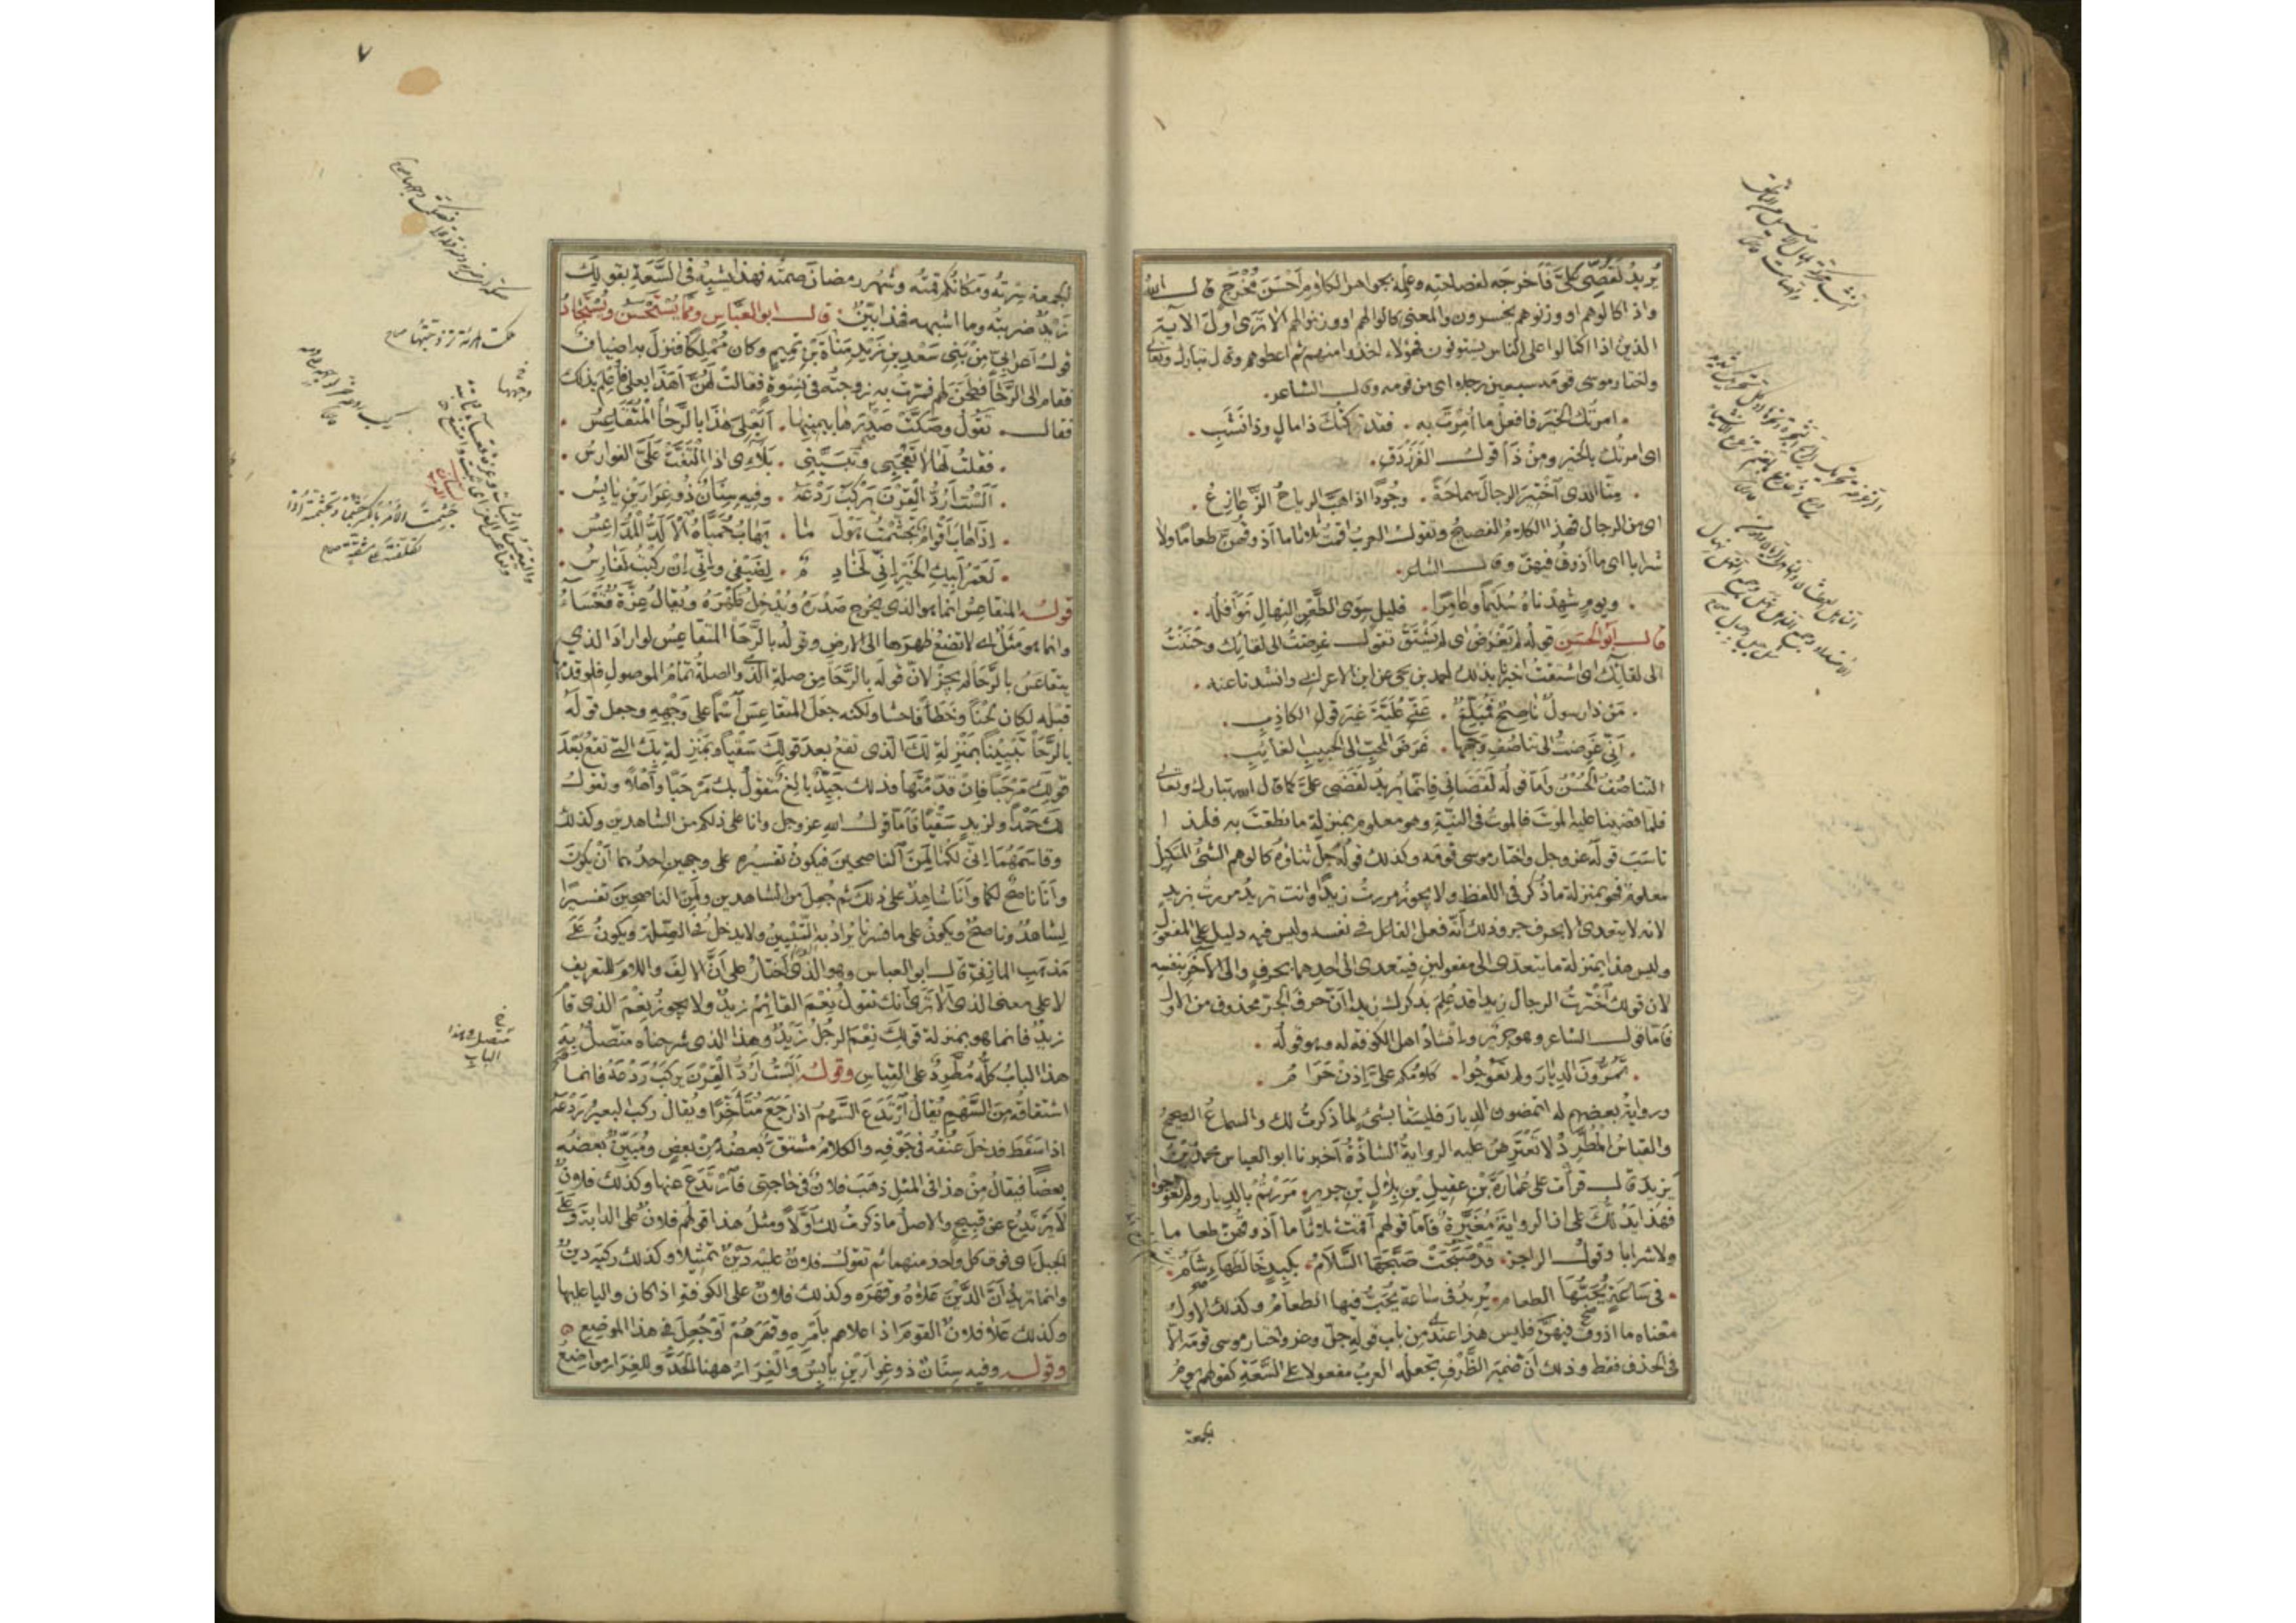 يُريدُ لَقُضِّى عَلَىَّ فَأَخرجَه لفصاحتِه وعِلْمِه بجواهر الكلام أَحْسَنَ مُخْرَجٍ قال الله
واذا كالوهم او وزنوهم يخسرون والمعنى كالوا لهم او وزنوا لهم الا تَرَى اوّل الآية
الذين اذا اكتالوا على الناس يستوفون فهؤلاء اخذوا منهم ثم اعطوهم وقال تبارك وتعالى
واختار موسى قومه سبعين رجلا اى من قومه وقال الشاعر.
امرتُك الخيرَ فافعل ما أُمِرْتَ به . فقد تركتُكَ ذا مالٍ وذا نَشَبِ .
اى امرتُك بالخير ومِنْ ذَا قولُ الفَرَزْدَقِ.
مِنَّا الذى اخْتِيرَ الرجالَ سَماحَةً . وجُودًا اذا هبَّ الرياحُ الزَّعازِعُ .
اى من الرجال فهذا الكلامُ الفصيحُ وتقول العربُ اقمتُ ثلاثا ما أذوقُهنّ طعامًا ولا
شرابا اى ما أذوقُ فيهنّ وقال الشاعر.
ويومٍ شهِدْناهُ سُلَيمًا وعَامِرًا . قليلٍ سِوَى الطَّعْنِ النِّهالِ نَوَافِلُه .
قال ابو الحسَن قوله لم يَغْرَضْ اى لم يَشْتَقْ تقول غرِضتُ الى لقائك وحَنَنْتُ
الى لقائك اى اشتقتُ اخبرنا بذلك احمد بن يحيى عن ابن الاعرابى وانشدنا عنه .
مَنْ ذا رسولٌ ناصحٌ فمُبَلِّغٌ . عَنّى عُلَيَّةَ غيرَ قولِ الكاذِبِ .
أَنِّى غَرِضتُ الى تناصُفِ وَجهِها . غَرَضَ المُحِبِّ الى الحبيبِ الغائِبِ .
التناصُفُ الحُسْنُ وأما قولُه لَقَضَانِى فإنما يُريدُ لَقَضَى عَلَىَّ كما قال الله تبارك وتعالى
فلما قضينا عليه الموتَ فالموتُ فى النيّةِ وهو معلوم بمنزلة ما نطقتَ به فلهذا
ناسَبَ قولَه عزوجل واختار موسى قومه وكذلك قولُه جلّ ثناؤه كالوهم الشئُ المكيلُ
معلوم فهو بمنزلة ما ذُكر فى اللفظ ولا يجوز مررتُ زيدًا وانت تريدُ مررتُ بزيدٍ
لانه لا يتعدى الا بحرف جر وذلك أنّه فعل الفاعل فى نفسه وليس فيه دليل على المفعول
وليس هذا بمنزلة ما يتعدّى الى مفعولين فيتعدى الى احدهما بحرفٍ والى الآخَرِ بنفسِه
لان قولك اخْتَرتُ الرجالَ زيدا قد عُلِمَ بذكرك زيدا أنّ حرفَ الجرّ محذوف من الاول
فأمّا قول الشاعر وهو جرير وانشادُ اهل الكوفة له وهو قوله .
تَمُرُّونَ الدِيارَ ولم تَعُوْجُوا . كلامُكم علىَّ إذنْ حَرَامُ .
وروايةُ بعضِهم له اتمضون الدِيارَ فليستا بشئٍ لما ذكرتُ لك والسماعُ الصحيحُ
والقياسُ المُطَّرِدُ لا تَعْتَرِضُ عليه الروايةُ الشاذّةُ أخبرنا ابو العباس محمد بن
يزيد قال قرأتُ على عُمَارَةَ بْنِ عقيلِ بْنِ بِلالِ بْنِ جرير مَرَرْتُمْ بالدِيار ولم تعوجوا
فهذا يَدُلُّكَ على انّ الروايةَ مُغَيَّرةٌ فأمّا قولهم أقمتُ ثلاثًا ما أذوقُهنّ طعاما
ولا شرابا وقولُ الراجز. قَدْ صَبَّحَتْ صَبَّحَهَا السَّلَامُ . بِكَبِدٍ خَالَطَهَا سَنَامُ .
فى سَاعَةٍ يُحَبُّهَا الطعام. يُريدُ فى ساعة يُحَبُّ فيها الطعامُ وكذلك الاوّل
معناه ما اذوقُ فيهنّ فليس هذا عندى من باب قوله جلّ وعز واختار موسى قومه الّا
فى الحذف فقط وذلك أنّ ضميرَ الظَّرْفِ تجعلُه العربُ مفعولا على السَّعَةِ كقولهم يومُ
الجمعة
٧
الجمعة سِرْتُه ومَكَانُكُم قمتُه وشهر رمضانَ صمتُه فهذا يُشبِهُ فى السَّعَةِ بقولك
زَيْدٌ ضربتُه وما اشبهه فهذا بيّنٌ. قال ابو العبَّاس ومِمَّا يُسْتَحْسَنُ ويُسْتَجَادُ
قولُ أعرابىٍّ مِنْ بَنِى سَعْدِ بن زيدِ مَنَاةَ بْنِ تميم وكان مُمْلِكًا فنزلَ به اضيافٌ
فقام الى الرَّحَا فطَحَنَ لهم فمرّتْ به زوجتُه فى نِسْوَةٍ فقالتْ لهُنّ أهَذا بعلى فأُعْلِمَ بذلك
فقال . تَقُولُ وصَكَّتْ صَدْرَها بيمينِها . أبَعْلِىَ هَذَا بالرَّحَا المُتَقَاعِسُ .
فقلتُ لها لا تَعْجَبِى وتَبَيَّنِى . بَلَاءِى إذا الْتَفَّتْ عَلَىَّ الفوارِسُ .
أَلَسْتُ أَرُدُّ القِرْنَ يَرْكَبُ رَدْعَهُ . وفيهِ سِنَانٌ ذُو غِرَارَيْنِ يابِسُ .
إذَا هَابَ أقْوَامٌ تَجَشَّمْتُ هَوْلَ ما . يَهَابُ حُمَيَّاهُ الأَلَدُّ المُدَاعِسُ .
لَعَمْرُ أبيكِ الخَيْرِ إنِّى لَخَادِمٌ . لِضَيْفِى وإنِّى إنْ رَكِبْتُ لَفَارِسُ .
قوله المتقاعِسُ انما هو الذى يُخرِج صَدْرَهُ ويُدْخِلُ ظَهْرَهُ ويُقالُ عِزَّةٌ قَعْسَاءُ
وانما هو مَثَلٌ اى لا تضَعُ ظهرَها الى الارضِ وقوله بالرَّحَا المتقاعِسُ لو ارادَ الذى
يتقاعَسُ بالرَّحَا لم يجُزْ لانّ قولَه بالرَّحَا مِن صلةِ الذى والصلةُ تمامُ الموصولِ فلو قدّمها
قبلَه لكان لَحْنًا وخَطَأً فاحشا ولكنه جعلَ المتقاعِسَ اسْمًا على وَجْهِهِ وجعل قولَهُ
بالرَّحَا تَبْيِينًا بمَنْزِلَةِ لَكَ الذى تقعُ بعدَ قولِكَ سَقْيًا وبمَنْزِلَةِ بِكَ التى تقعُ بَعْدَ
قولِكَ مَرْحَبًا فإنْ قدّمْتَها فذلك جَيِّدٌ بالِغٌ تقولُ بك مَرْحَبًا وأهْلًا وتقولُ
لك حَمْدًا ولزيدٍ سَقْيًا فأمّا قول الله عز وجل وانا على ذلكم من الشاهدين وكذلك
وقاسَمَهُما إنّى لكما لَمِنَ الناصحينَ فيكونُ تفسيرُه على وجهين احدُهما أنْ يكونَ
وأنَا ناصحٌ لكما وأنَا شاهِدٌ على ذلكَ ثم جُعِلَ من الشاهدين ولَمِنَ الناصحينَ تفسيرًا
لِشاهدٍ وناصحٍ ويكونُ على ما فسّرنا يُرادُ به التَّبْيينُ ولا يدخلُ فى الصِّلةِ ويكونُ عَلَى
مَذهبِ المازنِىّ قال ابو العباس وهو الذى أختارُ على أنّ الالفَ واللامَ للتعريفِ
لا على معنى الذى ألا تَرَى أنّك تقولُ نِعْمَ القائِمُ زيدٌ ولا يجوزُ نِعْمَ الذى قامَ
زيدٌ فانما هو بمنزلة قولِكَ نِعْمَ الرجُلُ زَيْدٌ وهذا الذى شرحناه متّصلٌ بِهِ
هذا البابُ كلُّه مُطَّرِدٌ على القياس وقوله ألَسْتُ أرُدُّ القِرْنَ يركَبُ رَدْعَهُ فانما
اشتقاقُه مِنَ السَّهْمِ يُقالُ ارْتَدَعَ السَّهمُ اذا رَجَعَ مُتَأَخِّرًا ويُقالُ ركِبَ البعيرُ رَدْعَهُ
اذا سَقَطَ فدخلَ عُنُقُه فى جَوْفِه والكلامُ مشتقٌّ بعضُهُ مِنْ بعضٍ ومُبَيِّنٌ بعضُه
بعضًا فيقالُ مِنْ هذا فى المثلِ ذهبَ فلانٌ فى حاجتى فارْتَدَعَ عنها وكذلك فلانٌ
لا يَرْتَدِعُ عن قبيحٍ والاصلُ ما ذكرتُ لك أوّلًا ومثلُ هذا قولُهم فلانٌ على الدابة وعَلَى
الجبلِ اى فوق كلِّ واحد منهما ثم تقول فلانٌ عليه دَيْنٌ تمثيلا وكذلك ركبَه دينٌ
وانما تريدُ أنّ الدَّيْنَ عَلاهُ وقهَرَه وكذلك فلانٌ على الكوفة اذا كان واليا عليها
وكذلك عَلَا فلانٌ القومَ اذا علاهم بأمْرِه وقهَرَهُمْ أوْ جُعِلَ فى هذا الموضِعِ
وقوله وفيه سِنَانٌ ذو غِرارَيْنِ يابِسُ والغِرَارُ ههنا الحَدُّ وللغِرَارِ مواضِعُ
جشِمتُ الأمرَ بالكسر جشْمًا وتجشّمتُه اذا
تكلّفتَه على مشقّة صحاح
متصل فى هذا
الباب